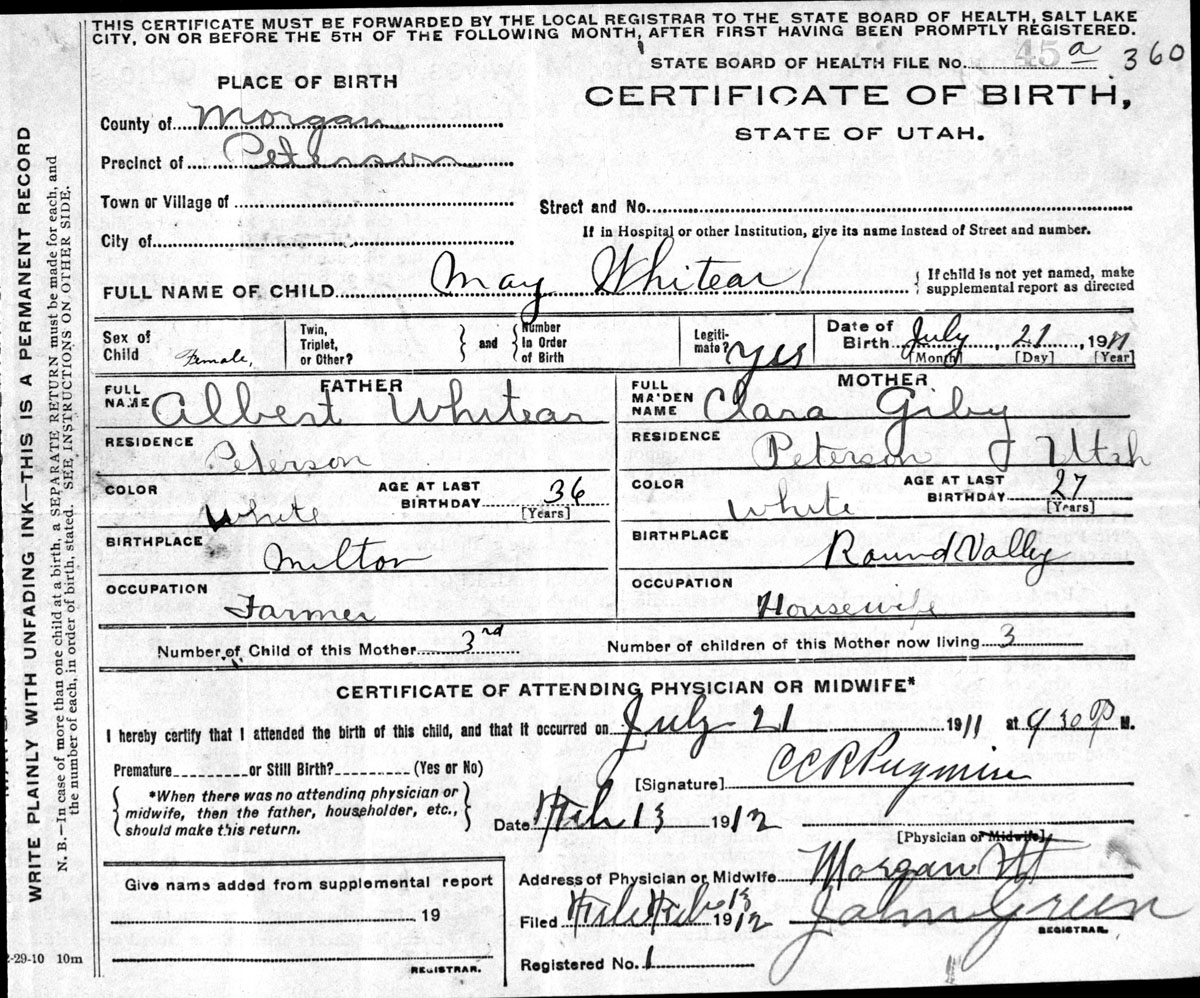 THIS CERTIFICATE MUST BE FORWARDED BY THE LOCAL REGISTRAR TO THE STATE BOARD OF HEALTH, SALT LAKE
CITY, ON OR BEFORE THE 5TH OF THE FOLLOWING MONTH, AFTER FIRST HAVING BEEN PROMPTLY REGISTERED.
STATE BOARD OF HEALTH FILE No. 45 a 360
PLACE OF BIRTH
CERTIFICATE OF BIRTH,
STATE OF UTAH.
County of Morgan
Precinct of Peterson
Town or Village of
Street and No.
City of
If in Hospital or other Institution, give its name instead of Street and number.
FULL NAME OF CHILD May Whitear
{ If child is not yet named, make
supplemental report as directed
Sex of Child Female,
Twin, Triplet, or Other?
and
Number In Order of Birth
Legitimate? Yes
Date of Birth July, 21, 1911
[Month] [Day] [Year]
FATHER
FULL NAME Albert Whitear
RESIDENCE Peterson
COLOR White
AGE AT LAST BIRTHDAY 36
[Years]
BIRTHPLACE Milton
OCCUPATION Farmer
MOTHER
FULL MAIDEN NAME Clara Giby
RESIDENCE Peterson Utah
COLOR White
AGE AT LAST BIRTHDAY 27
[Years]
BIRTHPLACE Round Valley
OCCUPATION Housewife
Number of Child of this Mother 3rd
Number of children of this Mother now living 3
CERTIFICATE OF ATTENDING PHYSICIAN OR MIDWIFE*
I hereby certify that I attended the birth of this child, and that it occurred on July 21 1911 at 9 30 P M.
Premature or Still Birth? (Yes or No)
*When there was no attending physician or
midwife, then the father, householder, etc.,
should make this return.
[Signature]
Date Feb 13 1912
[Physician or Midwife]
Address of Physician or Midwife Morgan Ut
Filed Feb 13 1912 John Green
REGISTRAR.
Registered No. 1
Give name added from supplemental report
19
REGISTRAR.
2-29-10 10m
WRITE PLAINLY WITH UNFADING INK—THIS IS A PERMANENT RECORD
N. B.—In case of more than one child at a birth, a SEPARATE RETURN must be made for each, and
the number of each, in order of birth, stated. SEE INSTRUCTIONS ON OTHER SIDE.